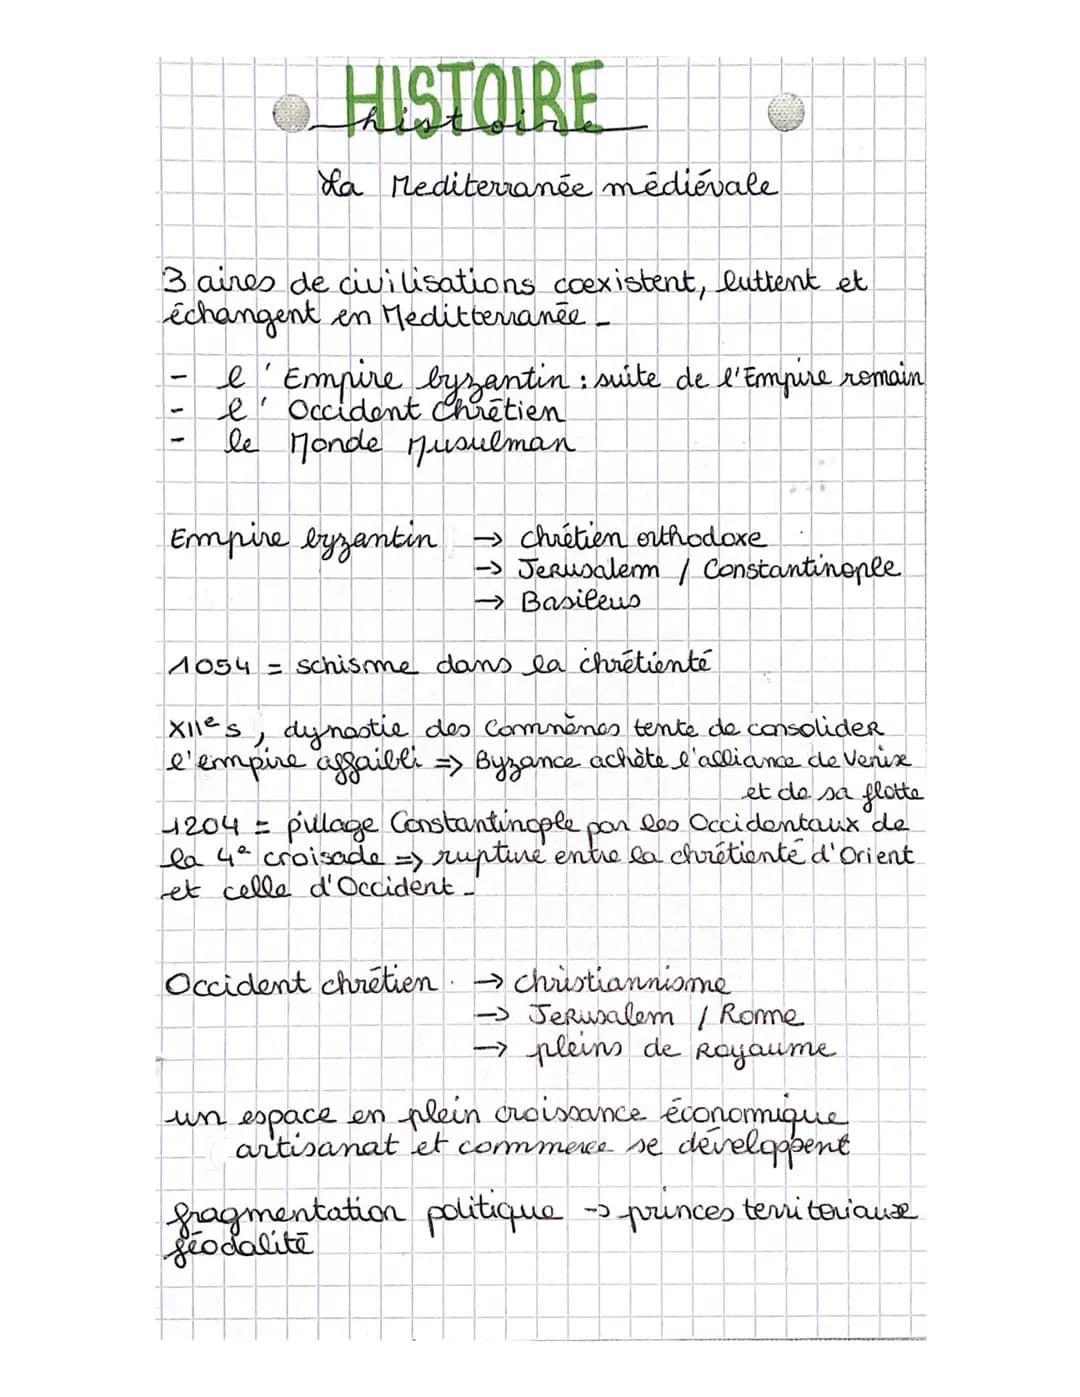 HISTOIRE
histoire
La Mediterranée médiévale
3 aires de civilisations coexistent, luttent et
échangent en Meditterranée.
- l'Empire byzantin : suite de l'Empire romain
- l'Occident Chrétien
- le Monde Musulman
Empire byzantin → chrétien orthodoxe
→ Jerusalem / Constantinople
→ Basileus
1054 = schisme dans la chrétienté
XIIe s, dynastie des Comnènes tente de consolider
l'empire affaibli => Byzance achète l'alliance de Venise
et de sa flotte
1204 = pillage Constantinople par les Occidentaux de
la 4e croisade => rupture entre la chrétienté d'Orient
et celle d'Occident.
Occident chrétien → christiannisme
→ Jerusalem / Rome
→ pleins de Royaume
un espace en plein croissance économique
artisanat et commerce se développent
fragmentation politique → princes territoriaux
féodalité